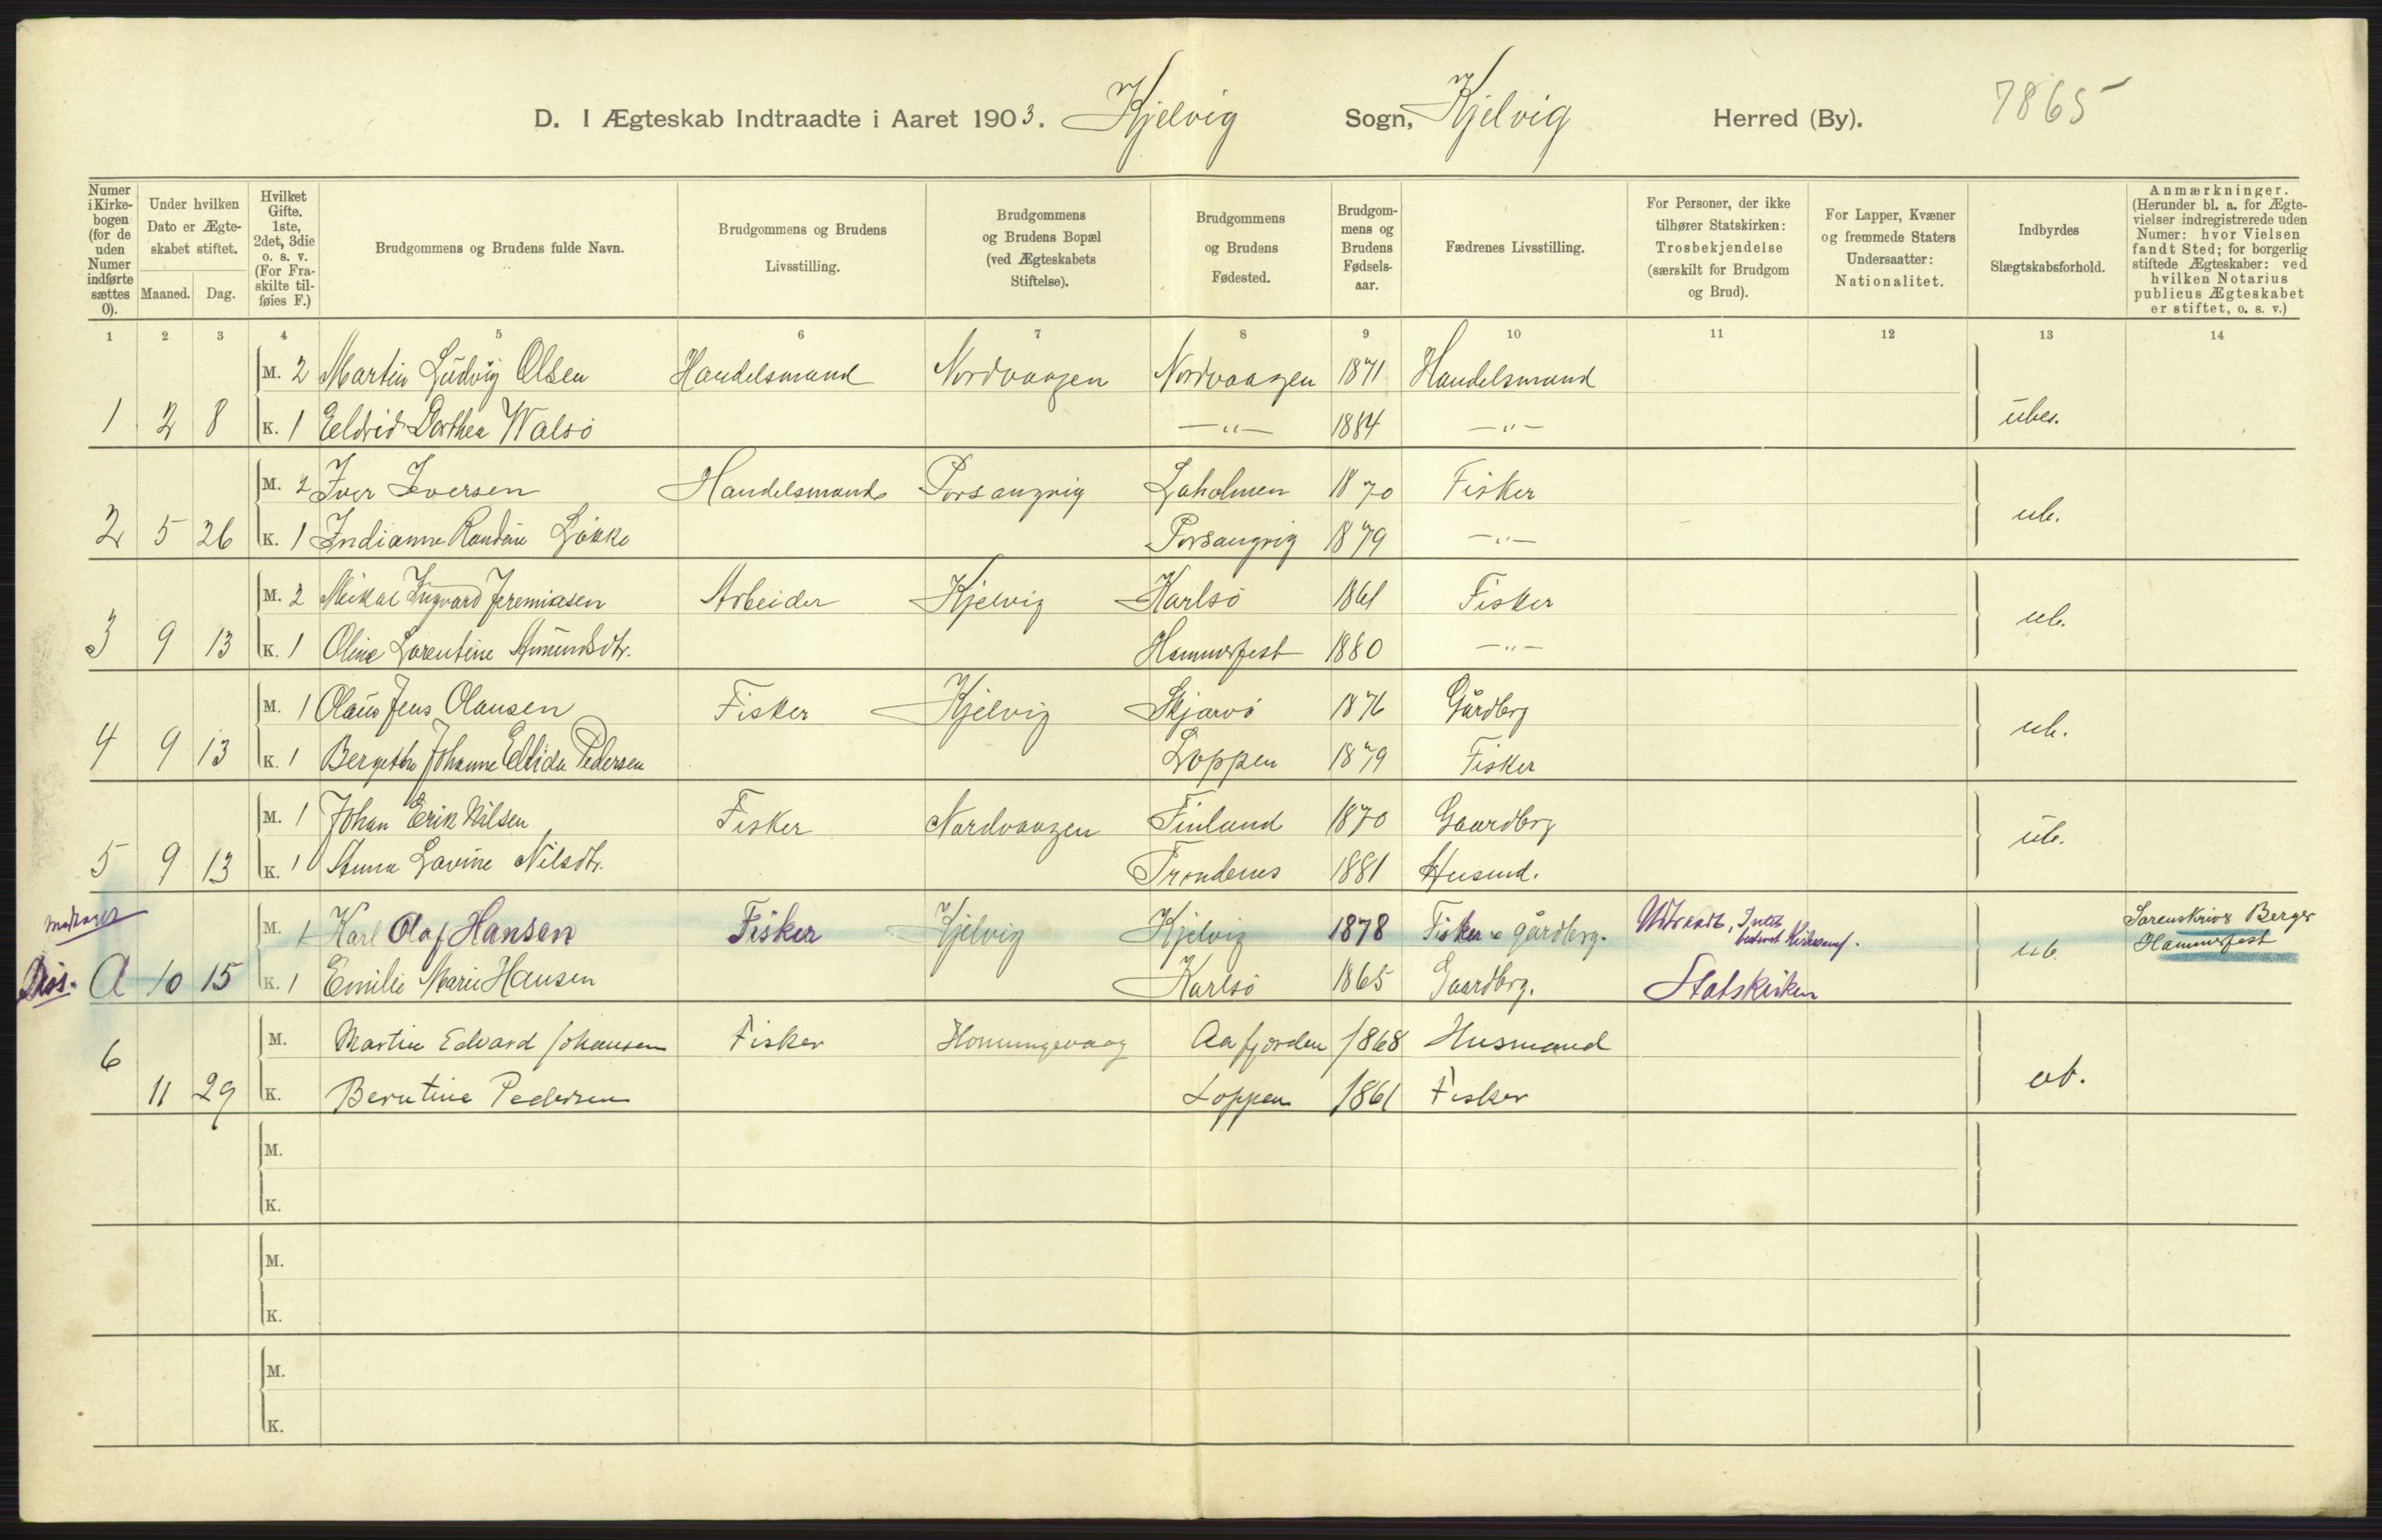 D. I Ægteskab Indtraadte i Aaret 1903. Kjelvig Sogn, Kjelvig Herred (By). 7865
Numer i Kirkebogen (for de uden Numer indførte sættes 0).
Under hvilken Dato er Ægteskabet stiftet.
Maaned. Dag.
Hvilket Gifte. 1ste, 2det, 3die o. s. v. (For Fraskilte tilføies F.)
Brudgommens og Brudens fulde Navn.
Brudgommens og Brudens Livsstilling.
Brudgommens og Brudens Bopæl (ved Ægteskabets Stiftelse).
Brudgommens og Brudens Fødested.
Brudgommens og Brudens Fødselsaar.
Fædrenes Livsstilling.
For Personer, der ikke tilhører Statskirken: Trosbekjendelse (særskilt for Brudgom og Brud).
For Lapper, Kvæner og fremmede Staters Undersaatter: Nationalitet.
Indbyrdes Slægtskabsforhold.
Anmærkninger. (Herunder bl. a. for Ægtevielser indregistrerede uden Numer: hvor Vielsen fandt Sted; for borgerlig stiftede Ægteskaber: ved hvilken Notarius publicus Ægteskabet er stiftet, o. s. v.)
1 2 3 4 5 6 7 8 9 10 11 12 13 14
M. 2 Martin Ludvig Olsen Handelsmand Nordvaagen Nordvaagen 1871 Handelsmand
1 2 8 K. 1 Eeldrid Dorthea Walsö —"— 1884 —"— übes.
M. 2 Iver Iversen Handelsmand Porsangvig Laholmen 1870 Fisker
2 5 26 K. 1 Indianne Randine Løkke Porsangvig 1879 —"— ub.
M. 2 Mikal Ingvard Jeremiasen Arbeider Kjelvig Karlsö 1861 Fisker
3 9 13 K. 1 Oline Lorentine Amundsdtr. Hammerfest 1880 —"— ub.
M. 1 Olaus Jens Olausen Fisker Kjelvig Skjærvö 1876 Gårdbrg
4 9 13 K. 1 Bergethe Johanne Ellida Pedersen Loppen 1879 Fisker ub.
M. 1 Johan Erik Nilsen Fisker Nordvaagen Finland 1870 Gaardbrg
5 9 13 K. 1 Anna Lovine Nilsdtr. Trondenes 1881 Husmd. üb.
M. 1 Karl Olaf Hansen Fisker Kjelvig Kjelvig 1878 Fisker & gårdbrg. Udtraadt, Intet Kirkesamf. Sorenskriver Berger Hammerfest
Diss. A 10 15 K. 1 Emilie Marie Hansen Karlsö 1865 Gaardbrg. Statskirken ub.
6 M. Martin Edvard Johansen Fisker Honningsvaag Aafjorden 1868 Husmand
11 29 K. Berntine Pedersen Loppen 1861 Fisker ub.
M.
K.
M.
K.
M.
K.